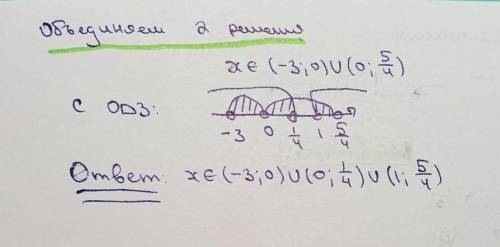 Объединяем 2 решения
x ∈ (-3; 0) ∪ (0; 5/4)
С ОДЗ:
-3 0 1/4 1 5/4
Ответ: x ∈ (-3; 0) ∪ (0; 1/4) ∪ (1; 5/4)